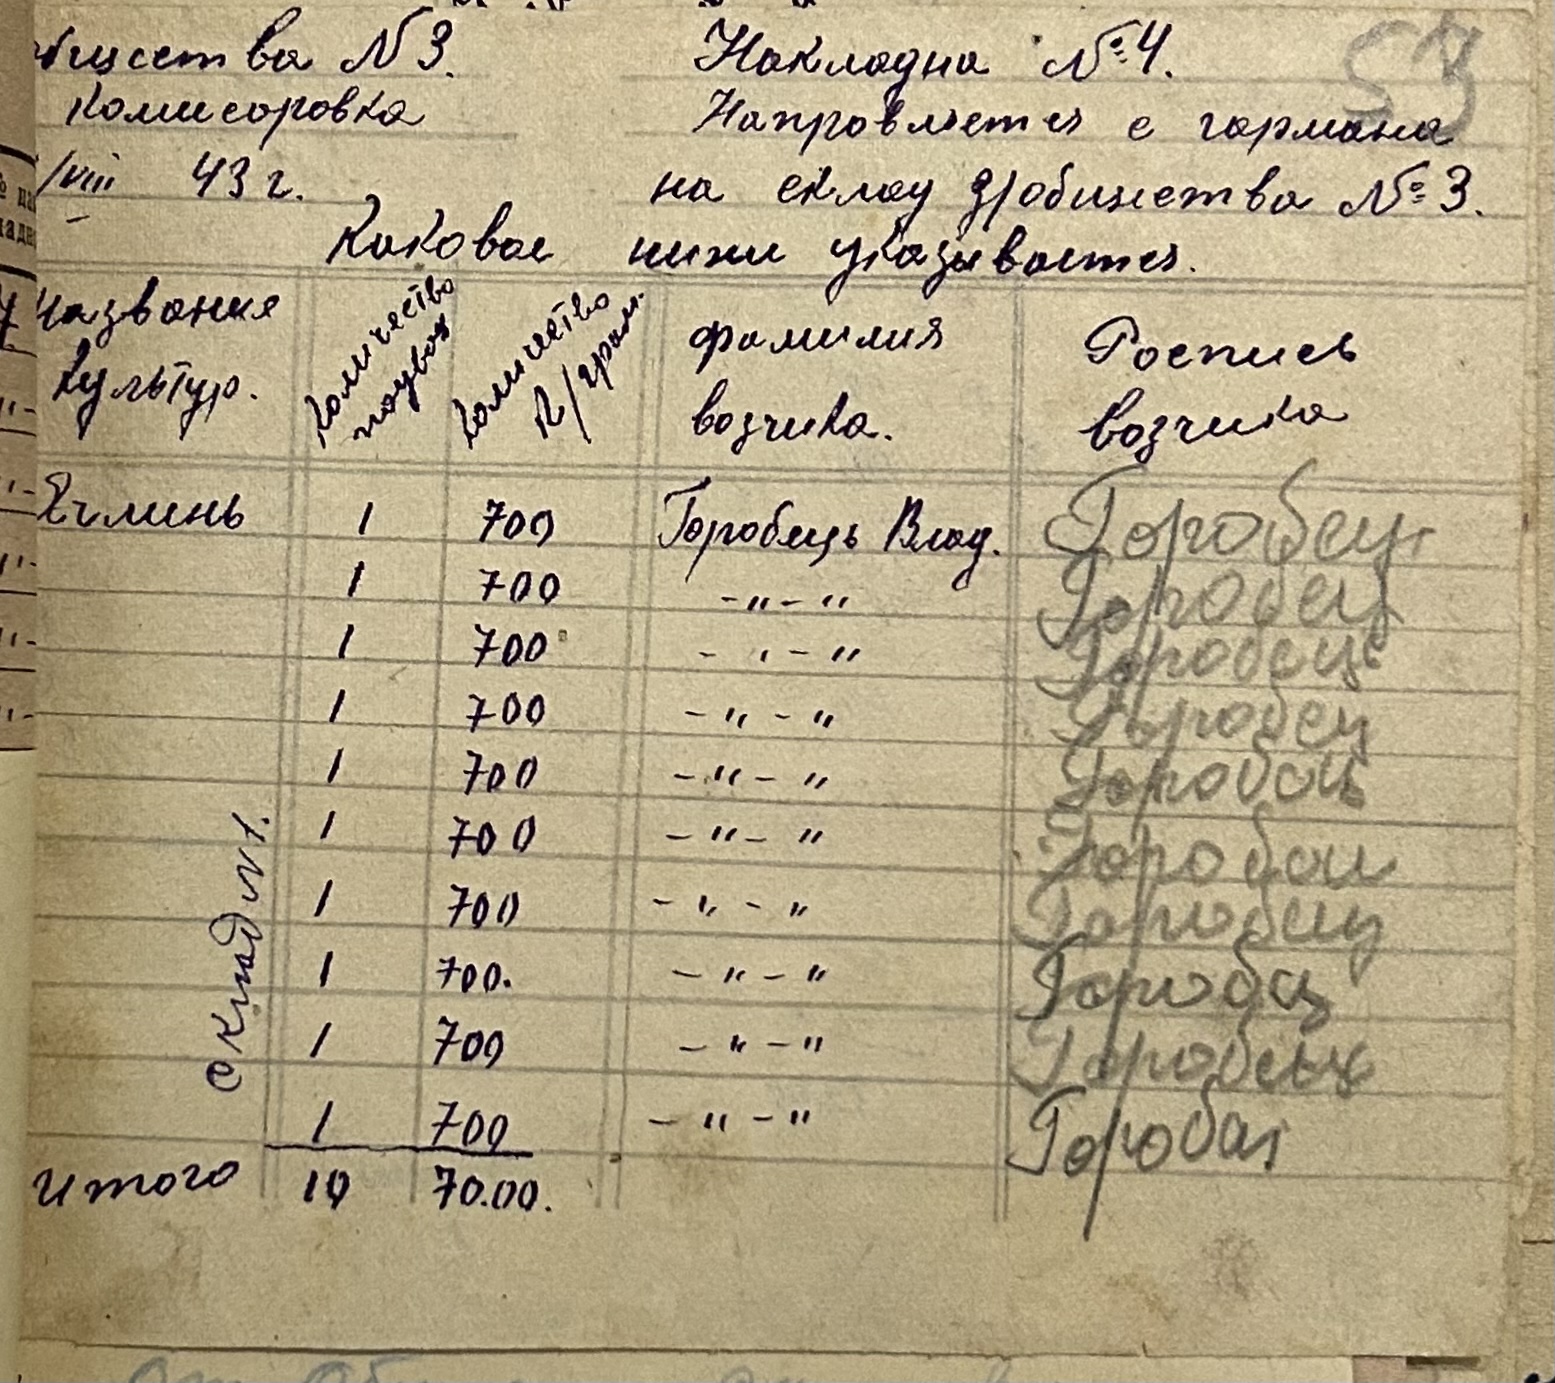 бщества N 3.
Накладна № 4.
53
Комисаровка
Направляется с гармана
/VIII 43 г.
на склад д/общества № 3.
Каковое ниже указывается.
Название культур.
Количество подвод
Количество К/грам.
Фамилия возчика.
Роспись возчика
Ячминь 1 700 Горобець Влад. Горобец
1 700 -"-" Горобец
1 700 -"-" Горобець
1 700 -"-" Горобец
1 700 -"-" Горобець
1 700 -"-" Горобец
1 700 -"-" Горобец
1 700. -"-" Горобец
1 700 -"-" Горобець
1 700 -"-" Горобец
Склад N 1.
Итого 10 70.00.